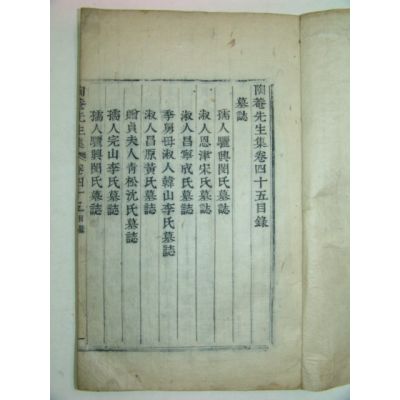 陶菴先生集卷四十五目錄
墓誌
孺人驪興閔氏墓誌
淑人恩津宋氏墓誌
淑人昌寧成氏墓誌
季舅母淑人韓山李氏墓誌
淑人昌原黃氏墓誌
贈貞夫人青松沈氏墓誌
孺人完山李氏墓誌
孺人驪興閔氏墓誌
陶菴先生集 卷四十五 目錄 一